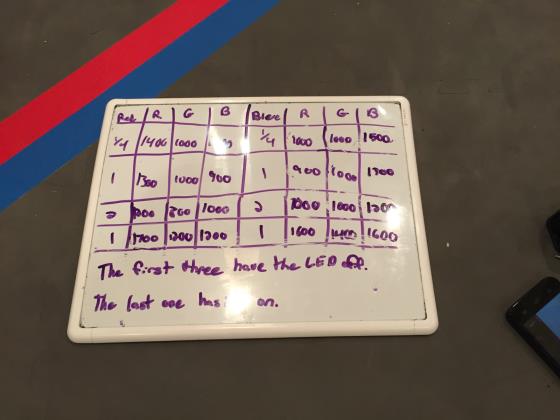 Red R G B Blue R G B
1/4 1400 1000 1/4 1000 1000 1500
1 1300 1000 900 1 900 1000 1300
2 1000 1000 2 1000 1000 1200
1 1700 1200 1200 1 1600 1400 1600
The first three have the LED off.
The last one has on.